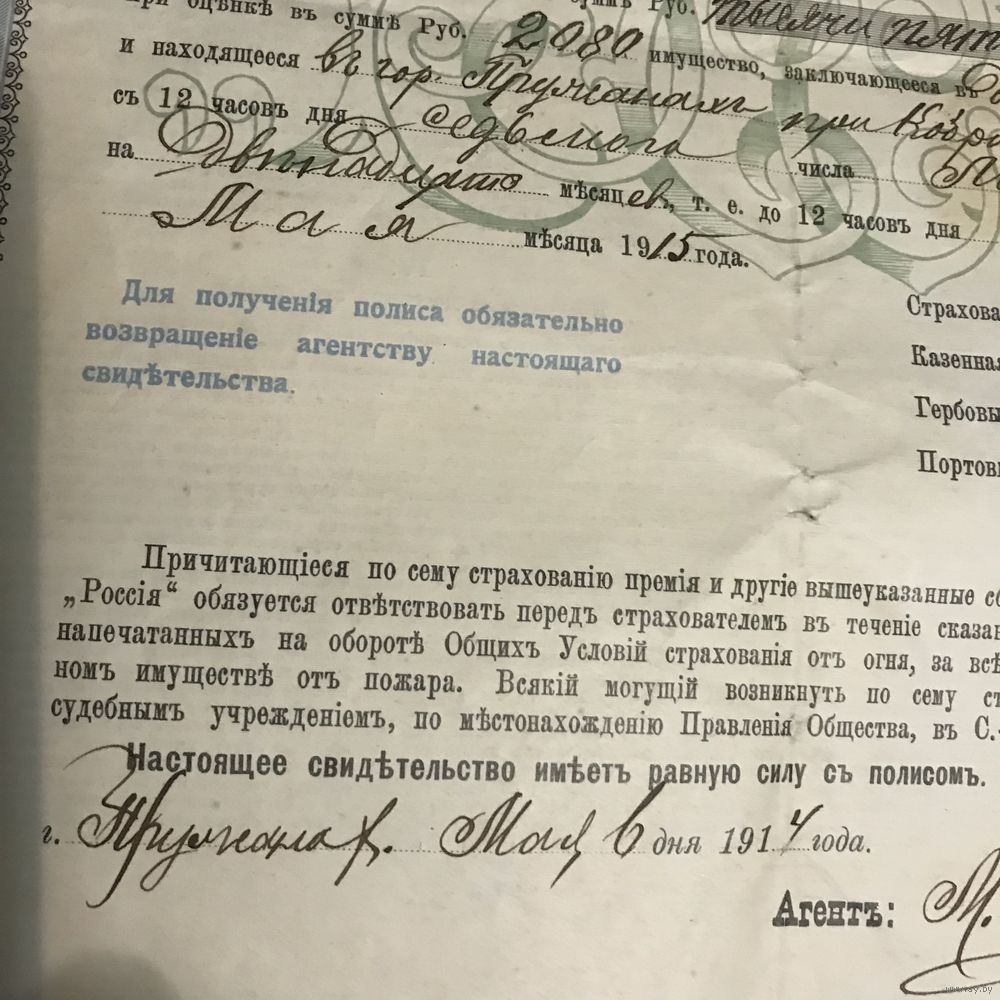 при оцѣнкѣ въ суммѣ Руб. 2080 имущество, заключающееся въ
суммѣ Руб. тысячи пят
и находящееся въ гор. Пружанахъ при Кобри
съ 12 часовъ дня Седьмого числа
на Двѣнадцать мѣсяцевъ, т. е. до 12 часовъ дня
Мая мѣсяца 1915 года.
Для полученія полиса обязательно
возвращеніе агентству настоящаго
свидѣтельства.
Страхова
Казенная
Гербовы
Портовы
Причитающіеся по сему страхованію премія и другіе вышеуказанные сб
„Россія“ обязуется отвѣтствовать передъ страхователемъ въ теченіе сказан
напечатанныхъ на оборотѣ Общихъ Условій страхованія отъ огня, за всѣ
номъ имуществѣ отъ пожара. Всякій могущій возникнуть по сему ст
судебнымъ учрежденіемъ, по мѣстонахожденію Правленія Общества, въ С.-
Настоящее свидѣтельство имѣетъ равную силу съ полисомъ.
г. Пружана Мая 6 дня 1914 года.
Агентъ: М.